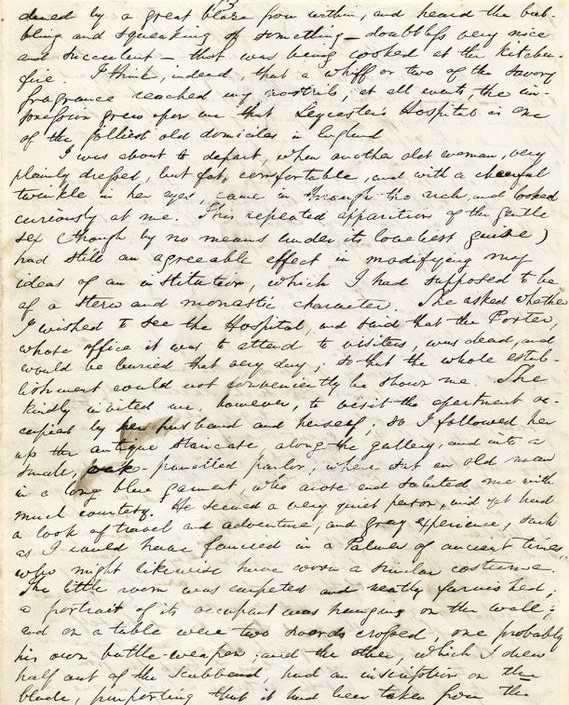 dened by a great blaze from within, and heard the bub-
bling and squeaking of something—doubtless very nice
and succulent—that was being cooked at the kitchen-
fire. I think, indeed, that a whiff or two of the savory
fragrance reached my nostrils; at all events, the im-
pression grew upon me that Leycester's Hospital is one
of the jolliest old domiciles in England.
I was about to depart, when another old woman, very
plainly dressed, but fat, comfortable, and with a cheerful
twinkle in her eyes, came in through the arch, and looked
curiously at me. This repeated apparition of the gentle
sex (though by no means under its loveliest guise)
had still an agreeable effect in modifying my
ideas of an institution, which I had supposed to be
of a stern and monastic character. She asked whether
I wished to see the Hospital, and said that the Porter,
whose office it was to attend to visitors, was dead, and
would be buried that very day, so that the whole estab-
lishment could not conveniently be shown me. She
kindly invited me, however, to visit the apartment oc-
cupied by her husband and herself; so I followed her
up the antique staircase, along the gallery, and into a
small, oak-panelled parlor, where sat an old man
in a long blue garment, who arose and saluted me with
much courtesy. He seemed a very quiet person, and yet had
a look of travel and adventure, and gray experience, such
as I could have fancied in a Palmer of ancient times,
who might likewise have worn a similar costume.
The little room was carpeted and neatly furnished;
a portrait of its occupant was hanging on the wall;
and on a table were two swords crossed, one probably
his own battle-weapon, and the other, which I drew
half out of the scabbard, had an inscription on the
blade, purporting that it had been taken from the